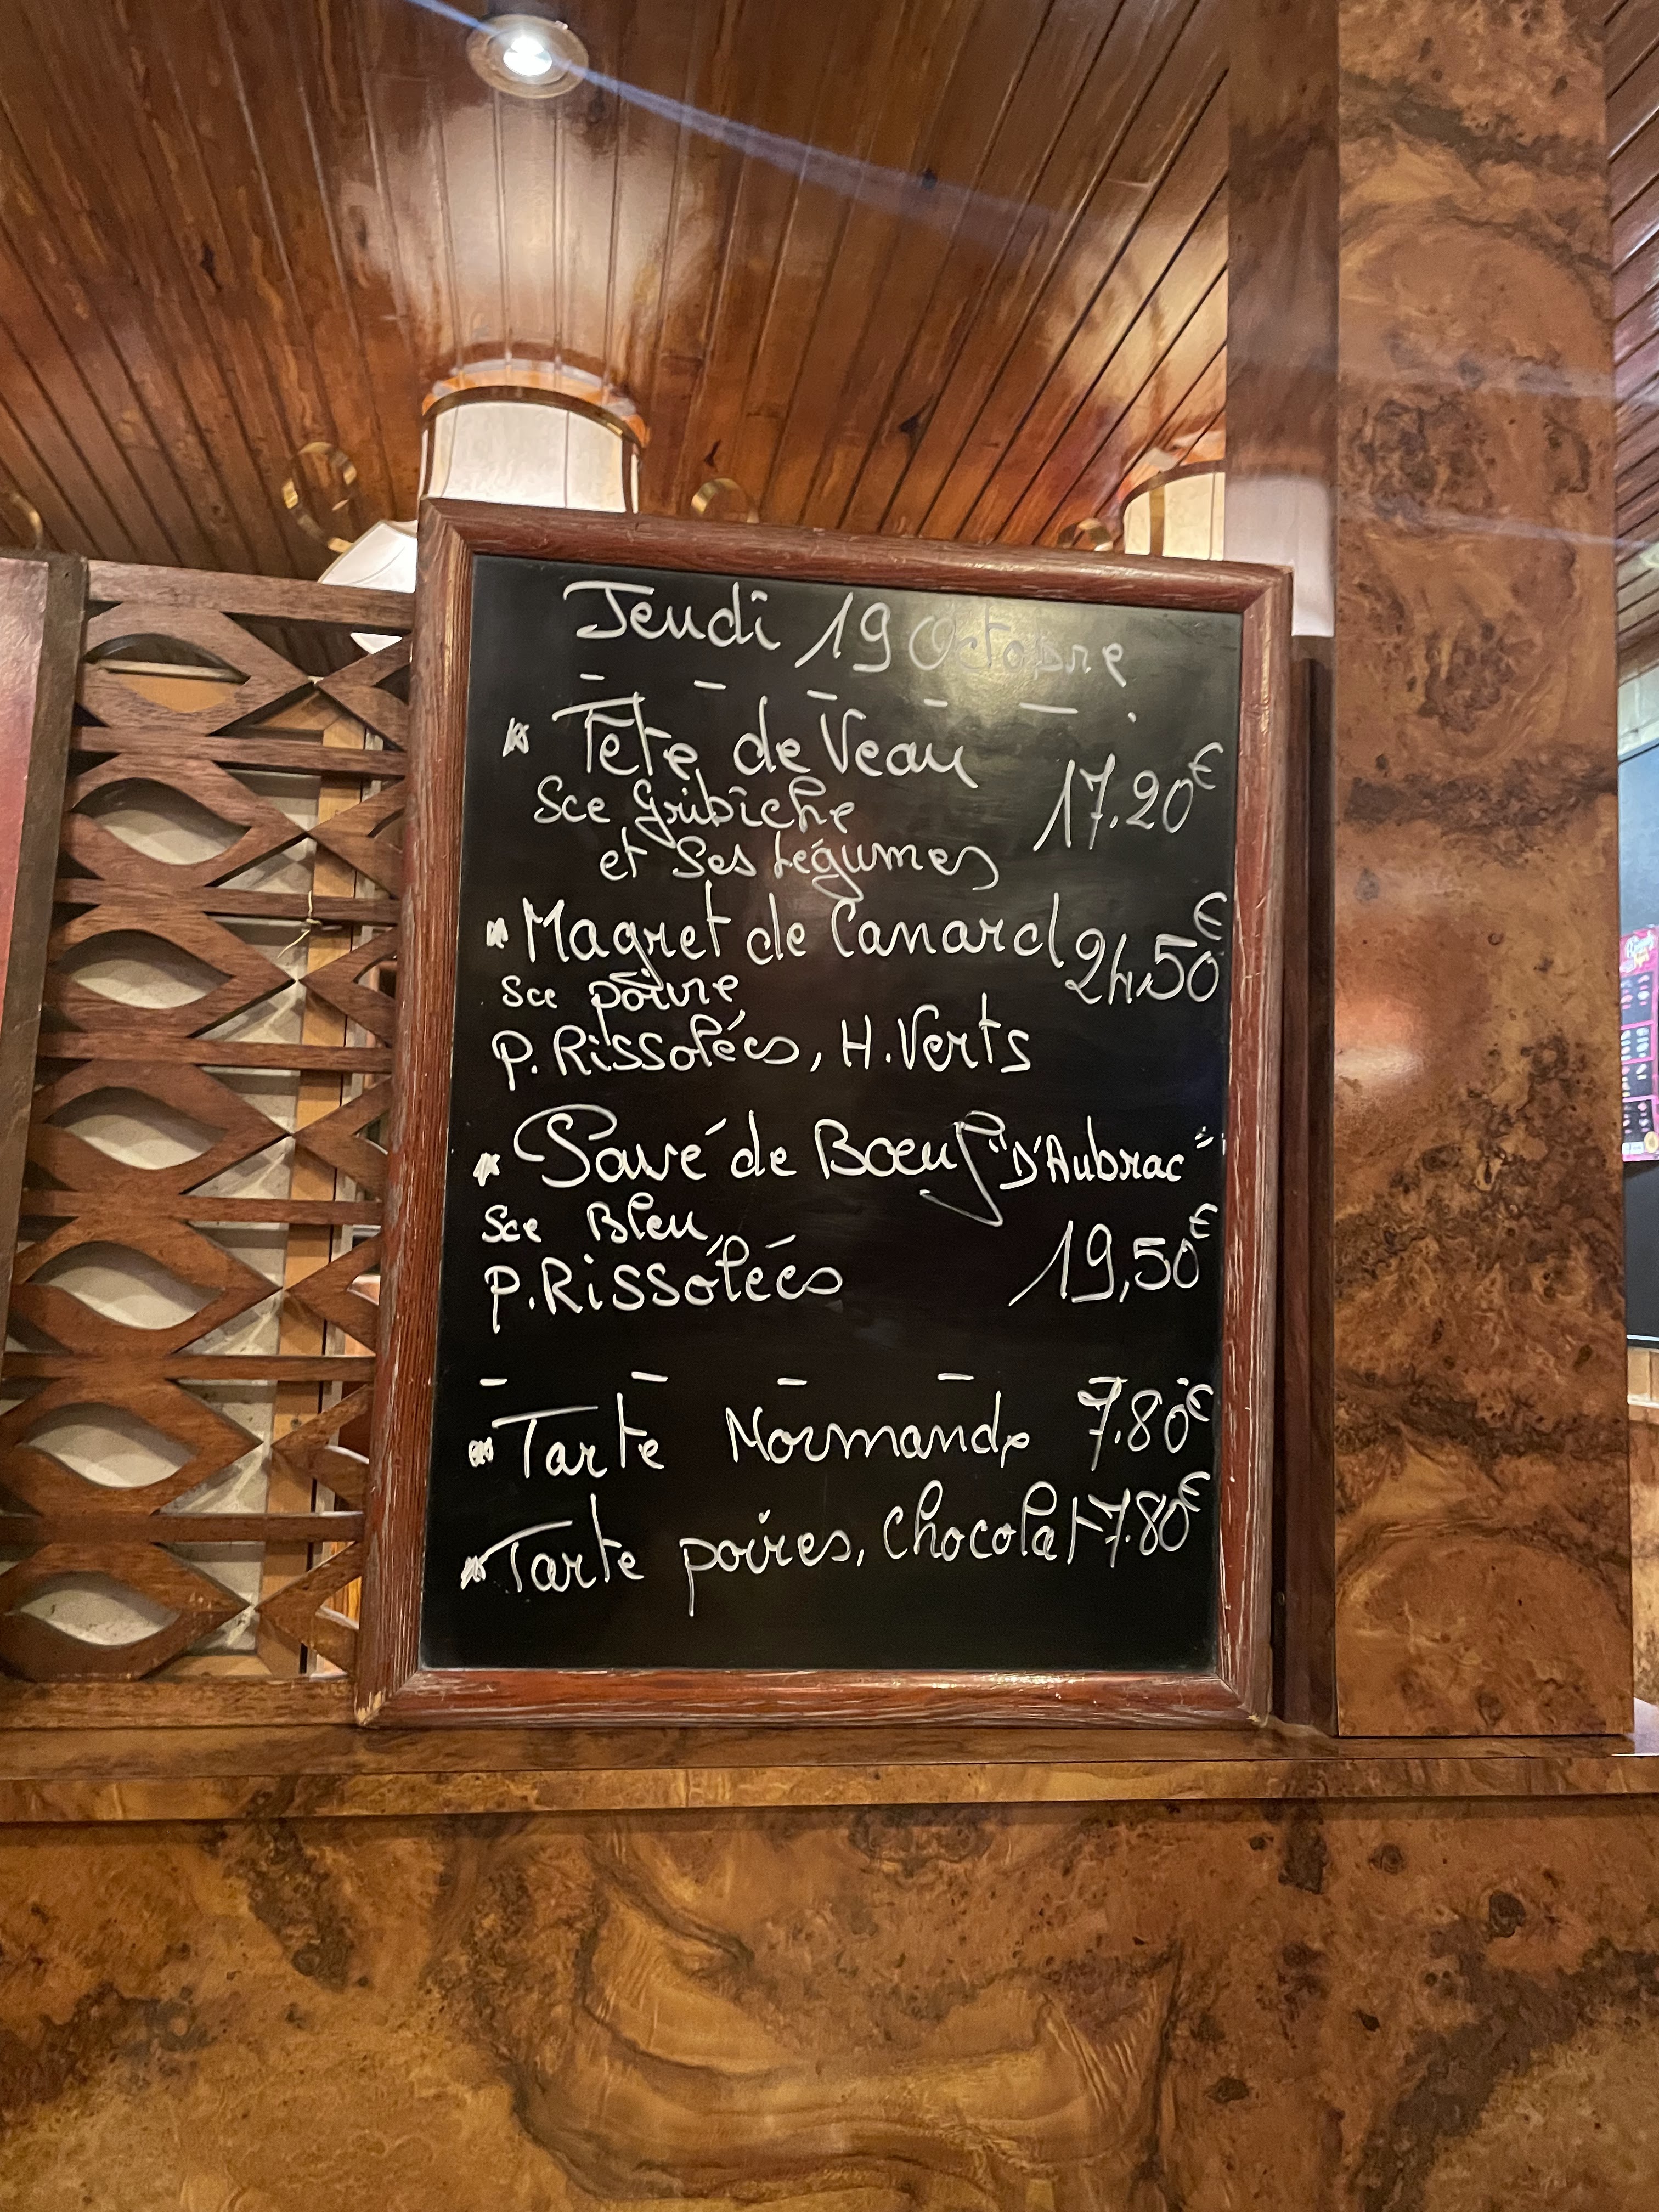 Jeudi 19 Octobre
* Tête de Veau
Sce Gribiche 17.20€
et Ses Légumes
* Magret de Canard 24,50€
Sce poivre
P. Rissolées, H. Verts
* Pavé de Boeuf "D'Aubrac"
Sce Bleu,
P. Rissolées 19,50€
* Tarte Normande 7.80€
* Tarte poires, Chocolat 7.80€